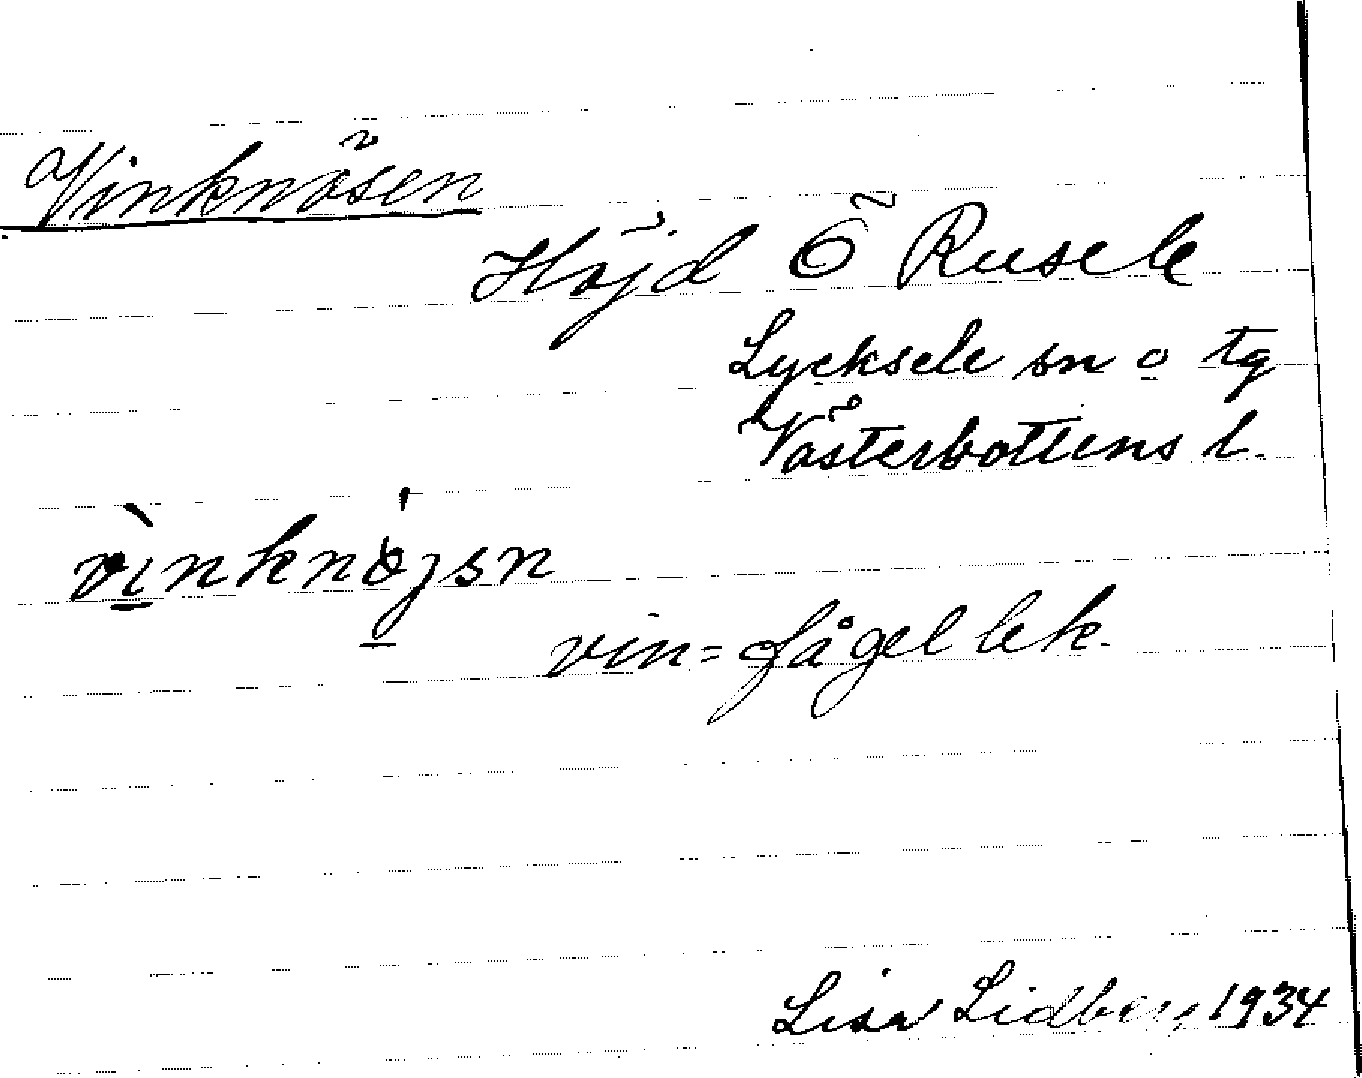 Vinknösen
Höjd Ö Rusele
Lycksele sn o tg
Västerbottens l.
vìnknøjsn
vin = fågellek.
Lisa Lidberg 1934